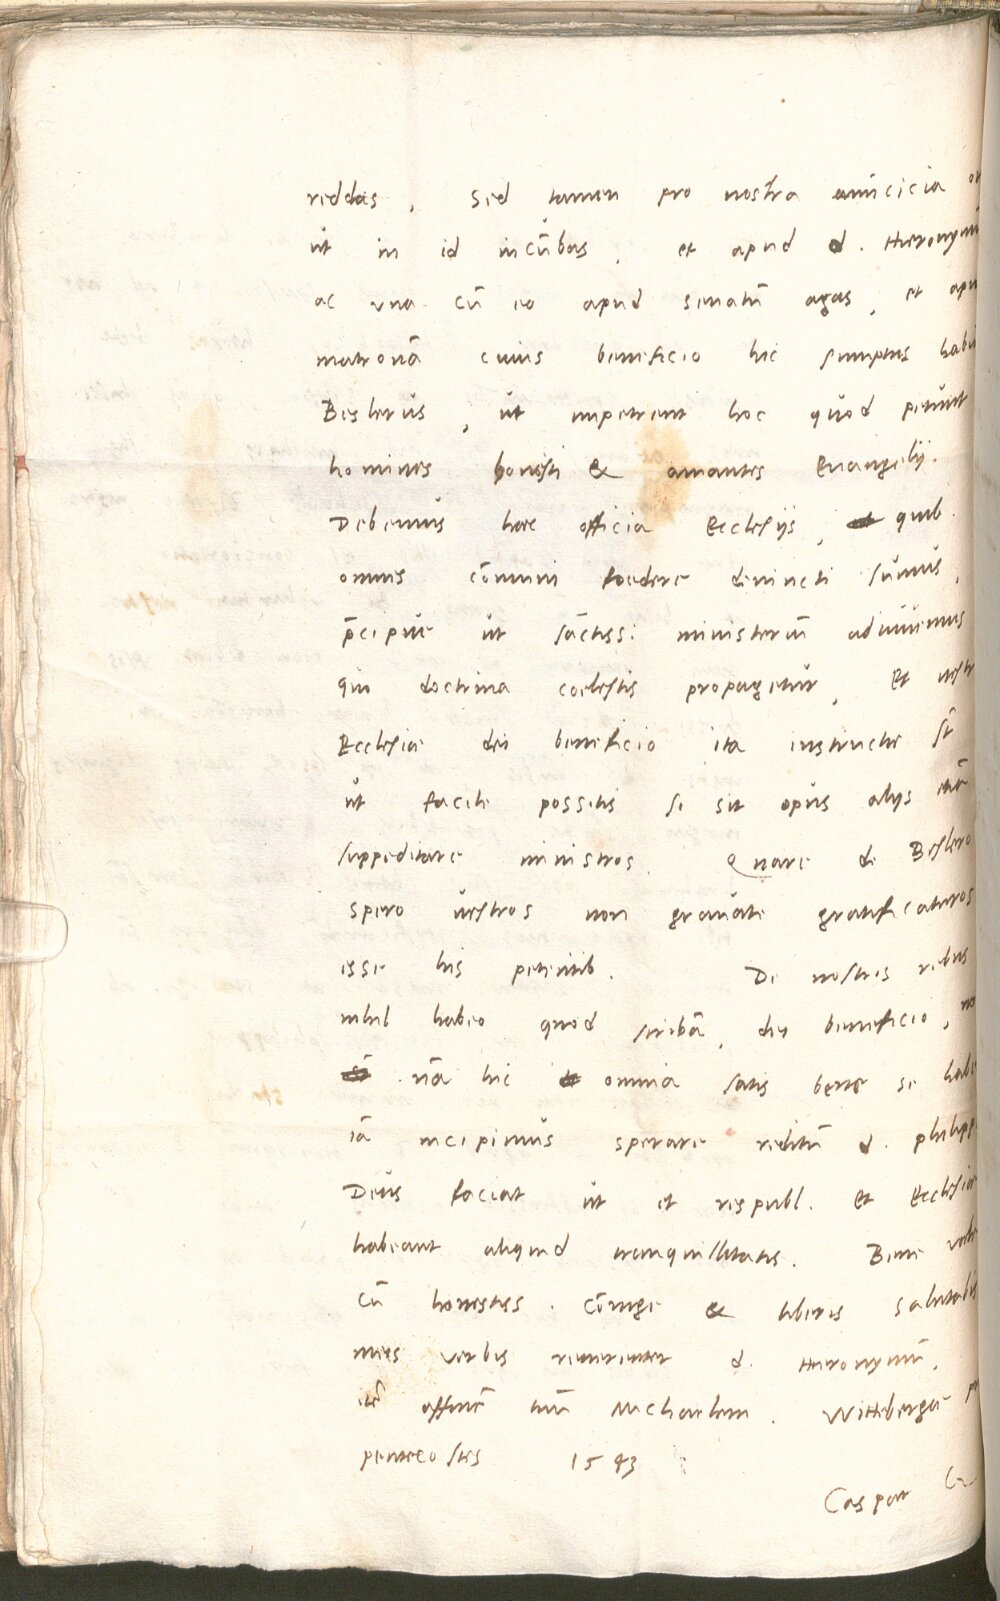 reddas, Sed tamen pro nostra amicicia
ut in id incūbas, et apud d. Hieronymū
ac vna cū eo apud senatū agas, et apu
matronā cuius beneficio hic sumptus habu
Beslerus, ut impetrent hoc quod petunt
homines honesti & amantes Euangelij.
Debemus haec officia Ecclesijs, quib.
omnes cōmuni foedere deuincti sumus,
p̄cipue ut sāctiss: ministeriū adiuuemus
quo doctrina coelestis propagetur, Et vestr
Ecclesiae dei beneficio ita instructe st̄
ut facile possitis si sit opus alijs etiā
suppeditare ministros. Quare de Beslero
spero vestros non grauate gratificaturos
esse his petentib. De nostris rebus
nihil habeo quod scribā, dei beneficio,
nā hic omnia satis bene se habe
iā incipimus sperare reditū d. philipp
Deus faciat ut et respubl. et Ecclesiae
habeant aliquid tranquillitatis. Bene vale
cū honestiss. cōiuge & liberis salutabis
meis verbis reuerenter d. Hieronymū,
itē affinē tuū Michaelem. Wittebergae
pentecostes 1543
Caspar